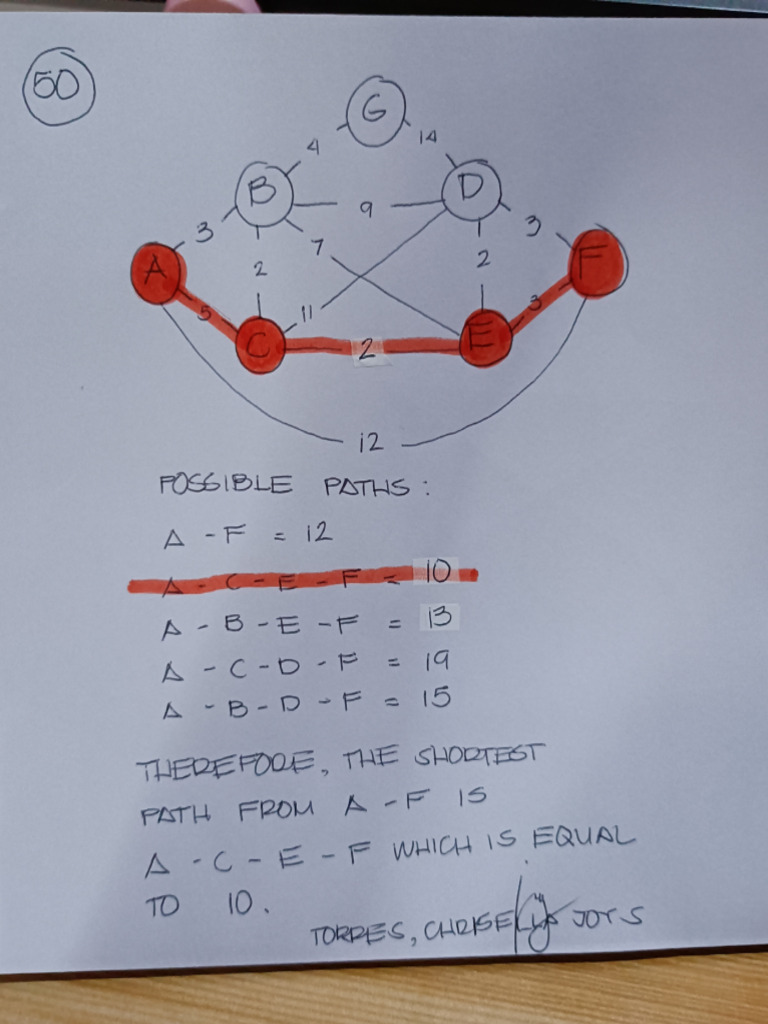 50
G
4
14
B
9
D
3
7
3
A
2
2
F
5
11
3
C
2
E
12
POSSIBLE PATHS:
A - F = 12
A - C - E - F = 10
A - B - E - F = 13
A - C - D - F = 19
A - B - D - F = 15
THEREFORE, THE SHORTEST
PATH FROM A - F IS
A - C - E - F WHICH IS EQUAL
TO 10.
TORRES, JOY S